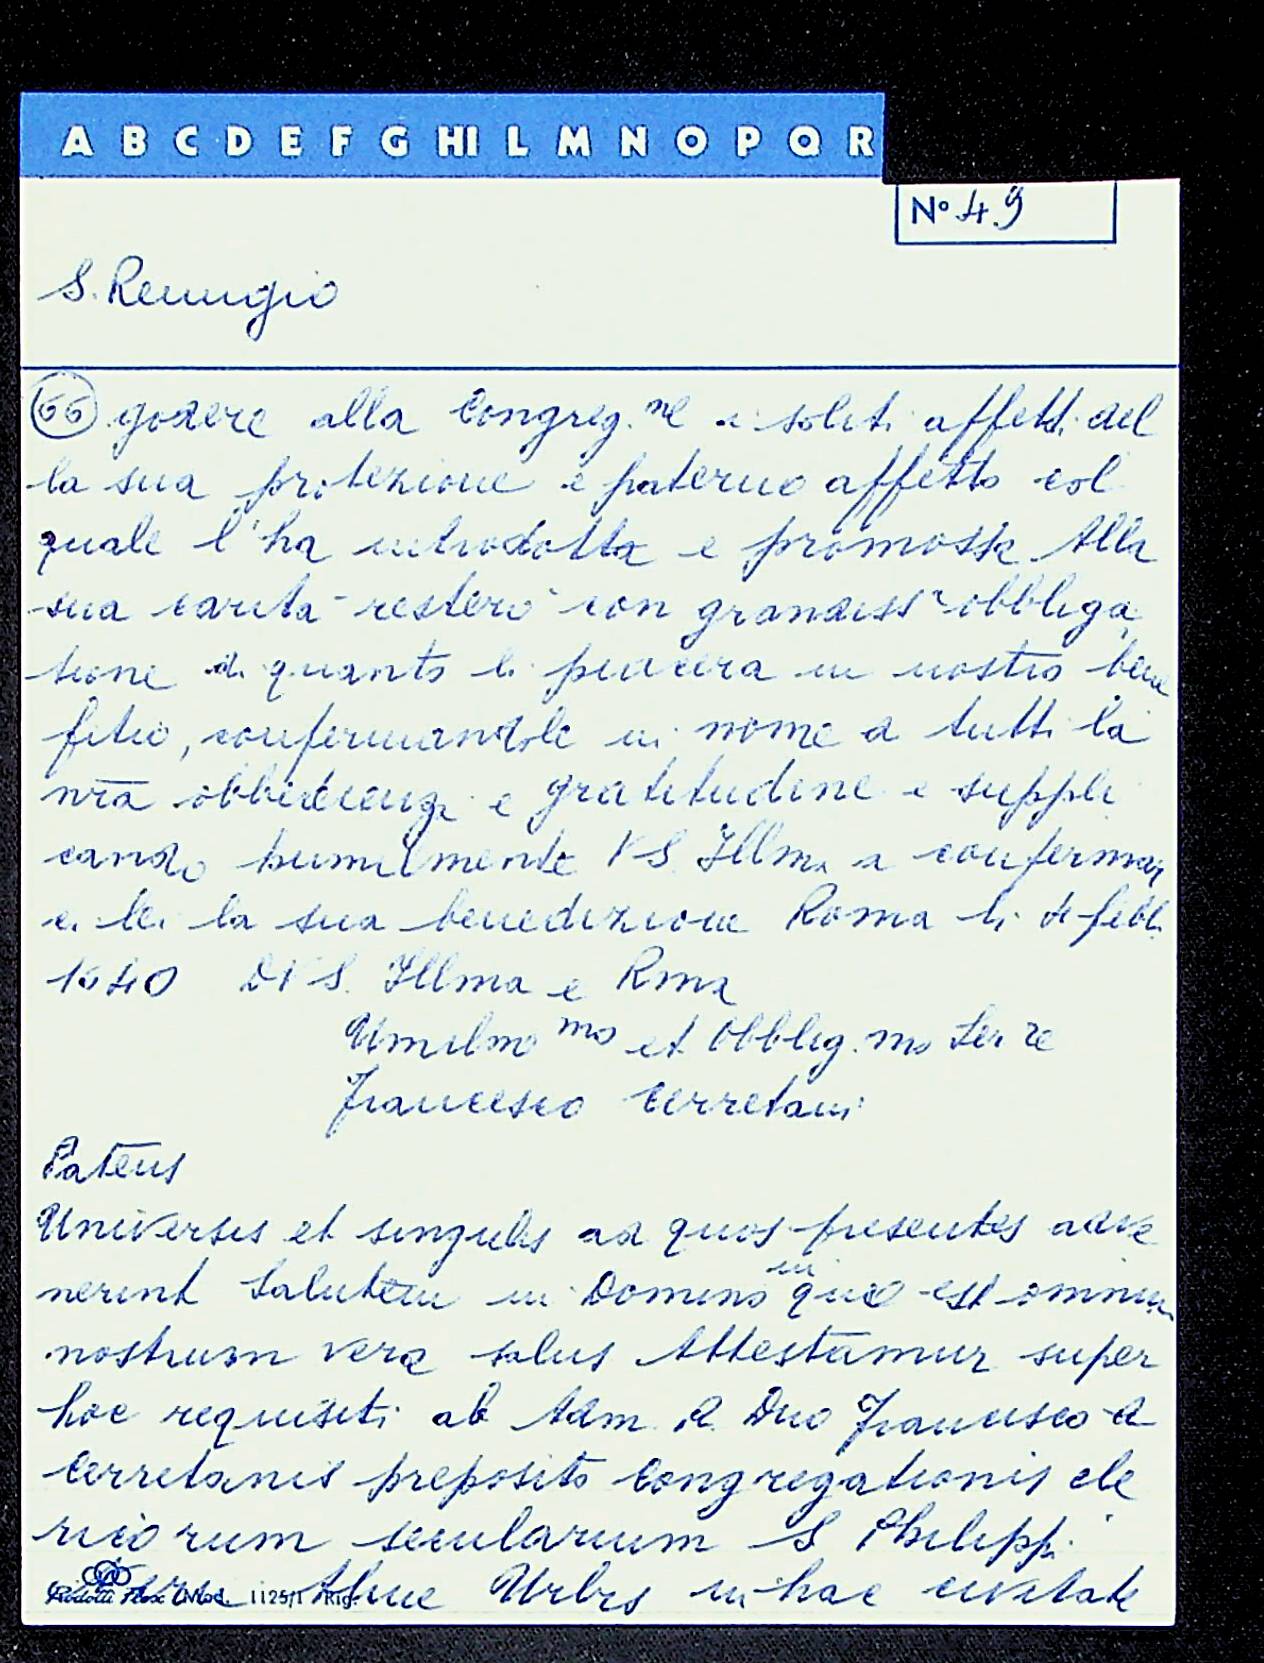 A B C D E F G HI L M N O P Q R
Nº 49
S. Remigio
66 godere alla Congreg.ne i soliti affetti del
la sua protezione e paterno affetto col
quale l'ha introdotta e promossa Alla
sua carità resterò con grandiss obbliga
tione di quanto li piacera in nostro bene
fitio, confermandole in nome a tutti la
nrã obbidienza e gratitudine e suppli
cando humilmente VS Illma a confermar
ci lei la sua benedizione Roma li 4 febb.
1640 DVS. Illma e Rma
Umilmo mo et Obblig.mo Ser re
Francesco Cerretani
Patens
Universis et singulis ad quos presentes adve
nerint Salutem in Domino in quo est omnium
nostrum vera salus Attestamur super
hoc requisiti ab Adm. R. Dno Francisco a
Cerretanis preposito Congregationis cle
ricorum secularium S Philippi
Almę Urbis in hac civitate
Mod. 1125/1 Rig.